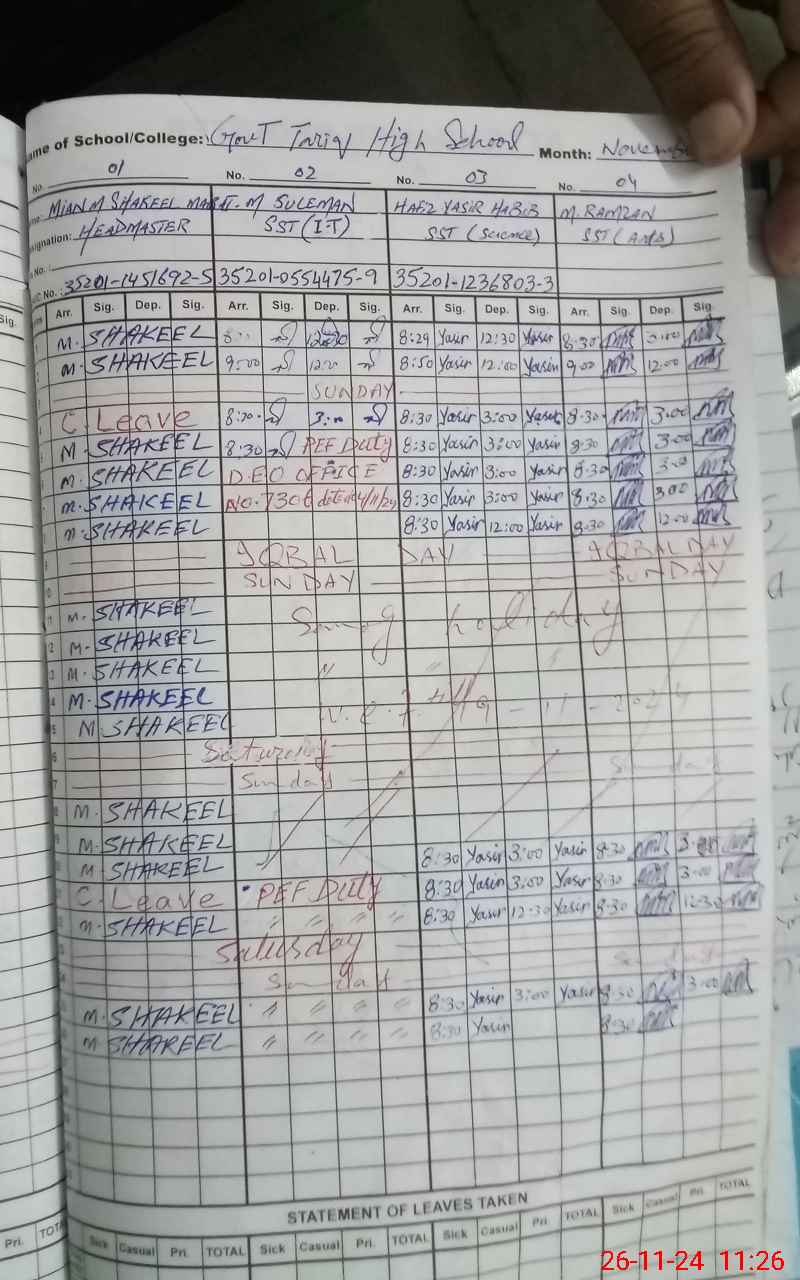 ame of School/College: Govt Tariq High School Month: Novem
No. 01 No. 02 No. 03 No. 04
MIAN M SHAKEEL M. SULEMAN HAFZ YASIR HABIB M. RAMZAN
signation: HEADMASTER SST (I.T) SST (Science) SST (Arts)
No.: 35201-1451692-5 35201-0554475-9 35201-1236803-3
Arr. Sig. Dep. Sig. Arr. Sig. Dep. Sig. Arr. Sig. Dep. Sig. Arr. Sig. Dep. Sig.
M. SHAKEEL 8:29 Yasir 12:30 Yasir 8:30
M. SHAKEEL 9:00 8:50 Yasir 12:00 Yasir 9.00 12.00
SUNDAY
C. Leave 8:30 Yasir 3:00 8:30 3.00
M. SHAKEEL 8:30 PEF Duty 8:30 Yasir 3:00 Yasir 8:30 3.00
M. SHAKEEL D.E.O OFFICE 8:30 Yasir 3:00 Yasir 8:30
M. SHAKEEL NO. 7306 dated 4/11/24 8:30 Yasir 3:00 Yasir 8:30 3.00
M. SHAKEEL 8:30 Yasir 12:00 Yasir 8:30 12.00
IQBAL DAY IQBAL DAY
SUNDAY SUNDAY
M. SHAKEEL Smog holiday
M. SHAKEEL
M. SHAKEEL " " "
M. SHAKEEL
M SHAKEEL 11-2024
Saturday
Sunday Sunday
M. SHAKEEL
M. SHAKEEL 8:30 Yasir 3:00 Yasir 8:30
M. SHAKEEL 8:30 Yasir 3:00 Yasir 8:30 3.00
C. Leave PEF Duty 8:30 Yasir 12-30 Yasir 8:30 12-30
M. SHAKEEL " " " "
Saturday
Sunday Sunday
M. SHAKEEL " " " " 8:30 Yasir 3:00 Yasir 8:30 3.00
M SHAKEEL " " " " 8:30 Yasir 8:30
STATEMENT OF LEAVES TAKEN
Pri. TOT Sick Casual Pri. TOTAL Sick Casual Pri. TOTAL Sick Casual Pri. TOTAL Sick Casual Pri. TOTAL
26-11-24 11:26